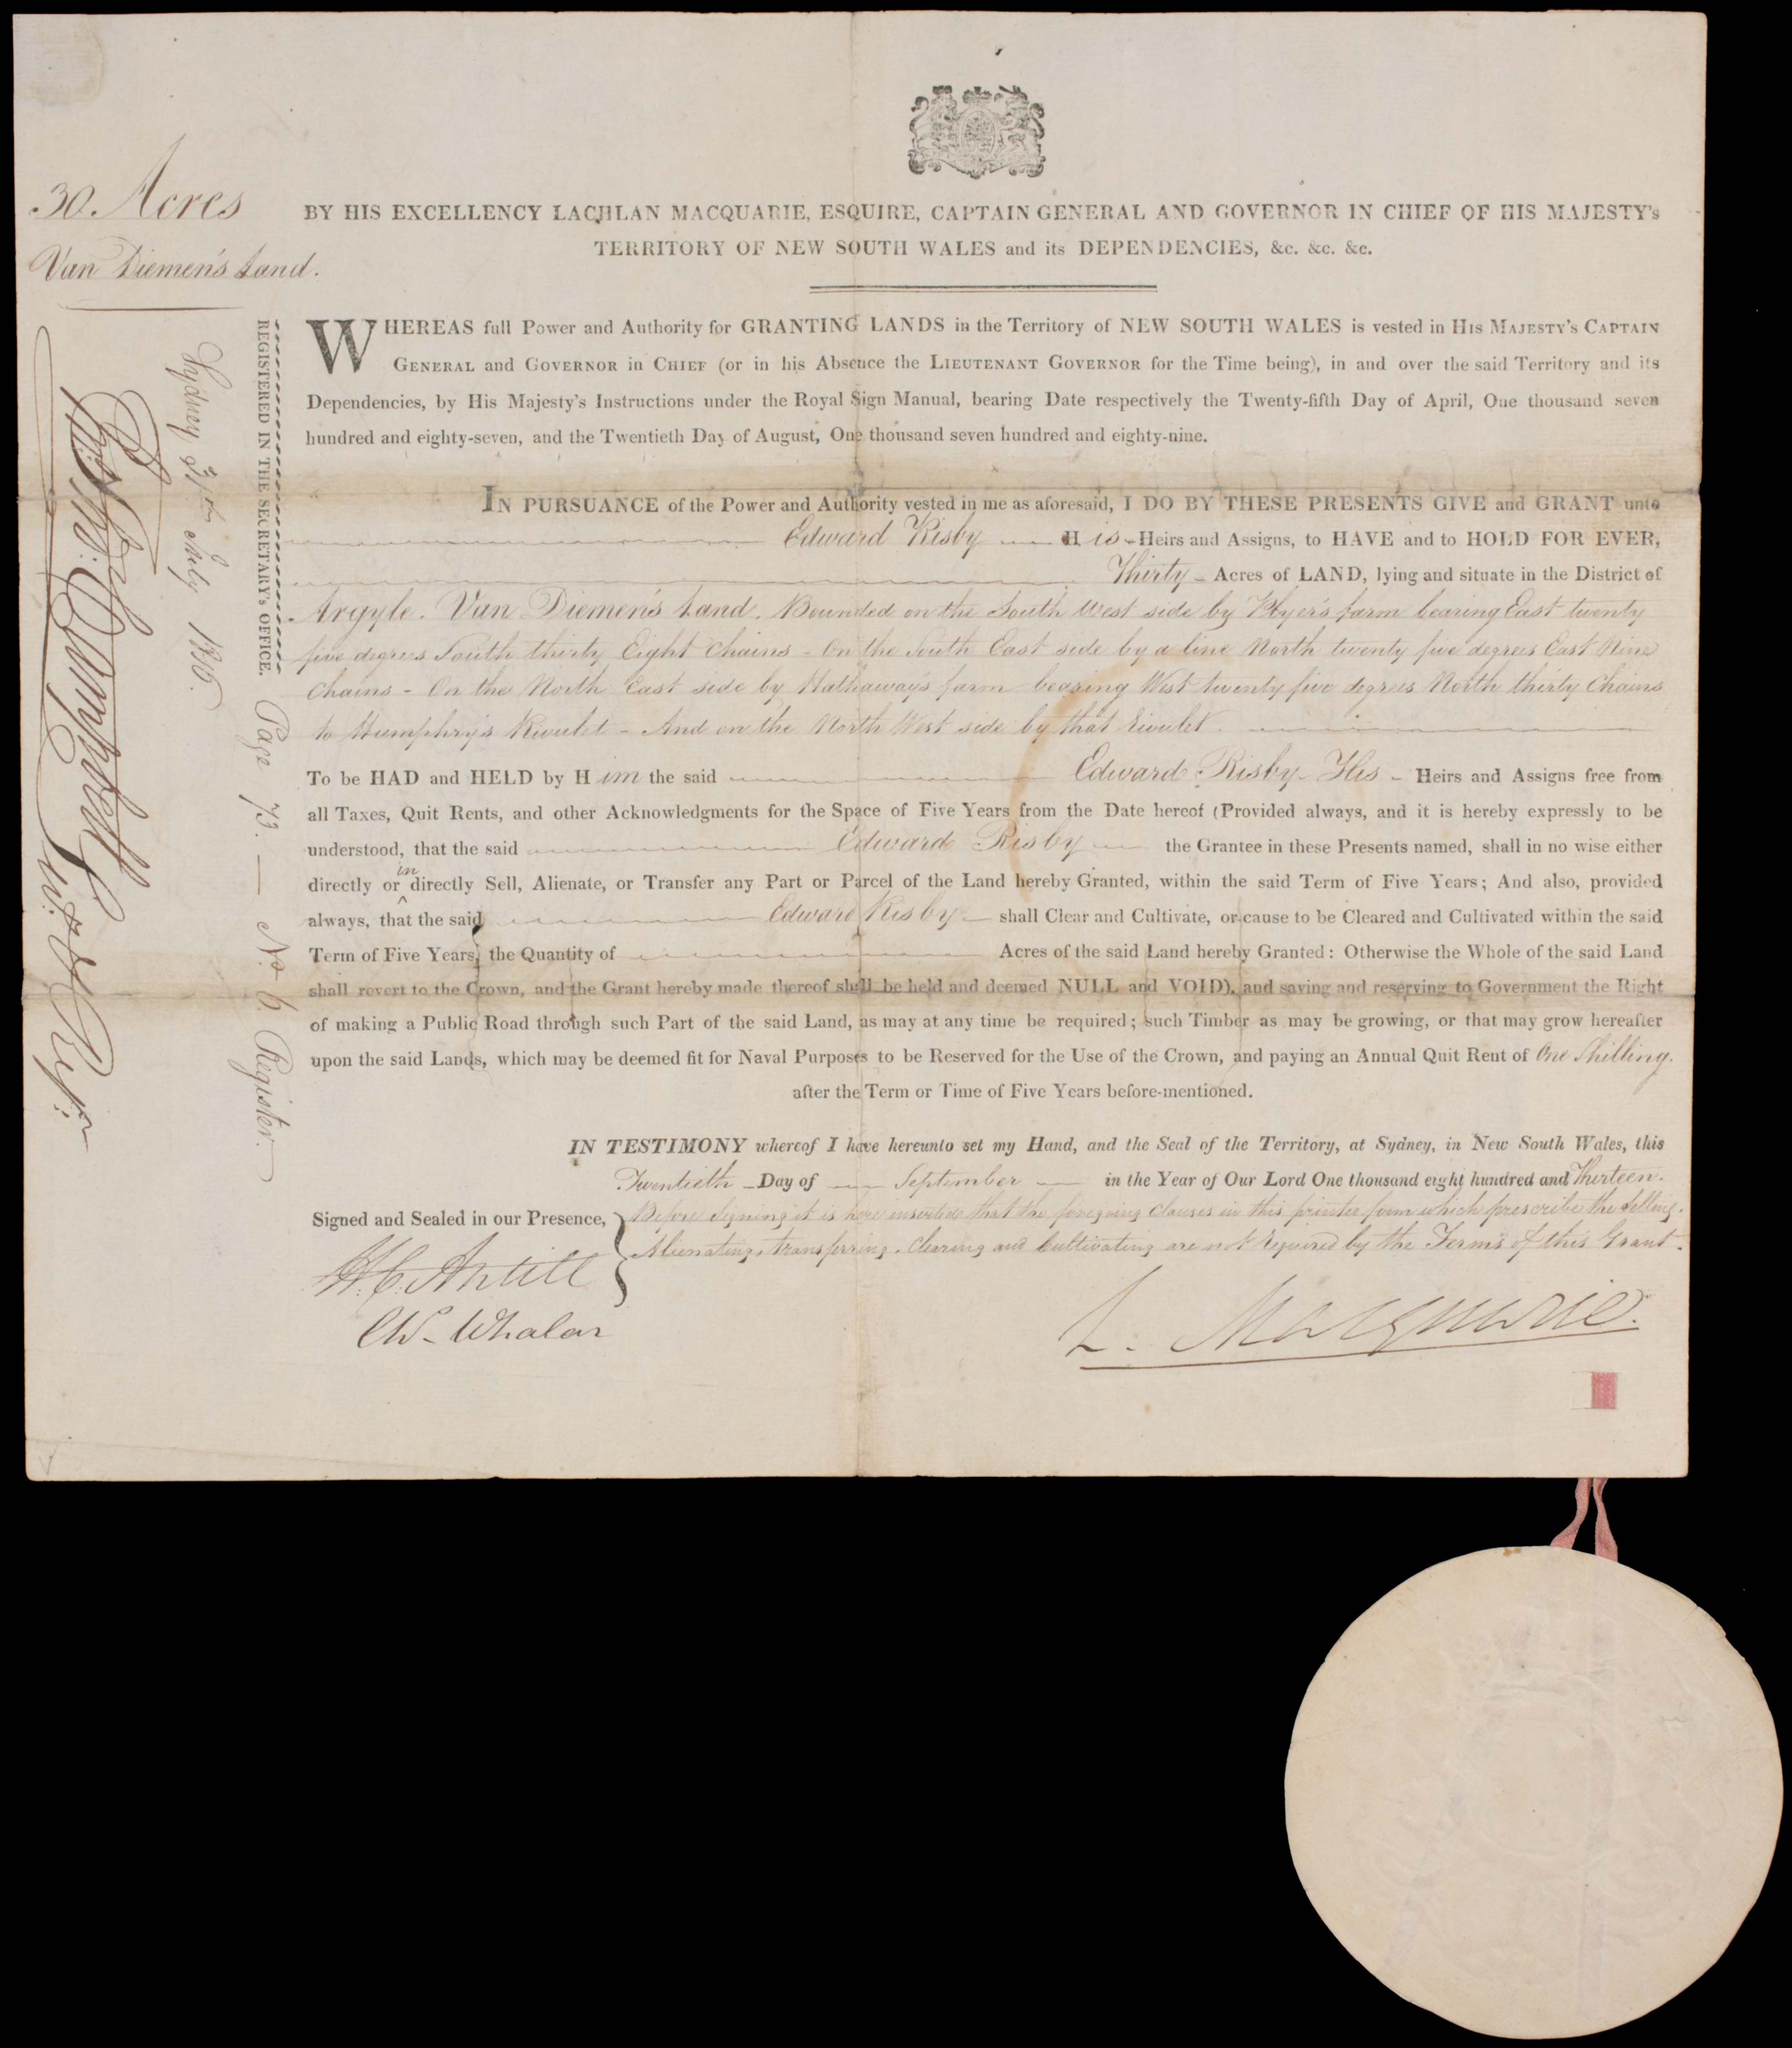 30. Acres
Van Diemen's Land.
BY HIS EXCELLENCY LACHLAN MACQUARIE, ESQUIRE, CAPTAIN GENERAL AND GOVERNOR IN CHIEF OF HIS MAJESTY's
TERRITORY OF NEW SOUTH WALES and its DEPENDENCIES, &c. &c. &c.
WHEREAS full Power and Authority for GRANTING LANDS in the Territory of NEW SOUTH WALES is vested in HIS MAJESTY'S CAPTAIN
GENERAL and GOVERNOR in CHIEF (or in his Absence the LIEUTENANT GOVERNOR for the Time being), in and over the said Territory and its
Dependencies, by His Majesty's Instructions under the Royal Sign Manual, bearing Date respectively the Twenty-fifth Day of April, One thousand seven
hundred and eighty-seven, and the Twentieth Day of August, One thousand seven hundred and eighty-nine.
IN PURSUANCE of the Power and Authority vested in me as aforesaid, I DO BY THESE PRESENTS GIVE and GRANT unto
Edward Risby — His - Heirs and Assigns, to HAVE and to HOLD FOR EVER,
Thirty - Acres of LAND, lying and situate in the District of
Argyle. Van Diemen's Land. Bounded on the South West side by farm bearing East twenty
five degrees South thirty Eight Chains - On the South East side by a line North twenty five degrees East Nine
Chains - On the North East side by Hathaway's farm bearing West twenty five degrees North thirty Chains
to Humphry's Rivulet - And on the North West side by that rivulet.
To be HAD and HELD by Him the said — Edward Risby - His - Heirs and Assigns free from
all Taxes, Quit Rents, and other Acknowledgments for the Space of Five Years from the Date hereof (Provided always, and it is hereby expressly to be
understood, that the said — Edward Risby — the Grantee in these Presents named, shall in no wise either
directly or indirectly Sell, Alienate, or Transfer any Part or Parcel of the Land hereby Granted, within the said Term of Five Years; And also, provided
always, that the said — Edward Risby — shall Clear and Cultivate, or cause to be Cleared and Cultivated within the said
Term of Five Years, the Quantity of — Acres of the said Land hereby Granted: Otherwise the Whole of the said Land
shall revert to the Crown, and the Grant hereby made thereof shall be held and deemed NULL and VOID), and saving and reserving to Government the Right
of making a Public Road through such Part of the said Land, as may at any time be required; such Timber as may be growing, or that may grow hereafter
upon the said Lands, which may be deemed fit for Naval Purposes to be Reserved for the Use of the Crown, and paying an Annual Quit Rent of One Shilling.
after the Term or Time of Five Years before-mentioned.
IN TESTIMONY whereof I have hereunto set my Hand, and the Seal of the Territory, at Sydney, in New South Wales, this
Twentieth - Day of — September — in the Year of Our Lord One thousand eight hundred and Thirteen.
Before Signing it is here inserted that the foregoing Clauses in this printed form which prescribe the Selling,
Alienating, transferring, Clearing and Cultivating are not required by the Terms of this Grant.
Signed and Sealed in our Presence,
H. C. Antill
Chs. Whalan
L. Macquarie.
REGISTERED IN THE SECRETARY'S OFFICE. Page 73. — No. 6. Register.
Sydney July 1816.
Campbell